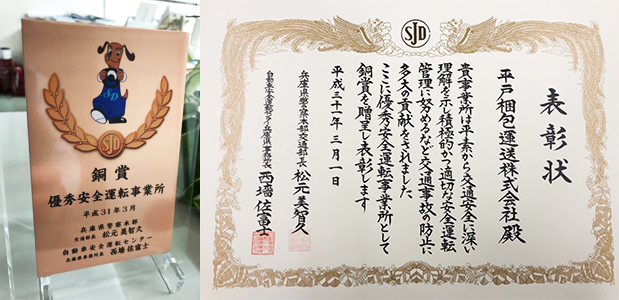 SJD
SJD
銅賞
優秀安全運転事業所
平成31年3月
兵庫県警察本部
交通部長 松元美智久
自動車安全運転センター
兵庫県事務所長 西墻佐富士
SJD
表彰状
平戸梱包運送株式会社殿
貴事業所は平素から交通安全に深い
理解を示し積極的かつ適切な安全運転
管理に努めるなど交通事故の防止に
多大の貢献をされました
ここに優秀安全運転事業所として
銅賞を贈呈し表彰します
平成三十一年三月一日
兵庫県警察本部交通部長 松元美智久
自動車安全運転センター兵庫県事務所長 西墻佐富士